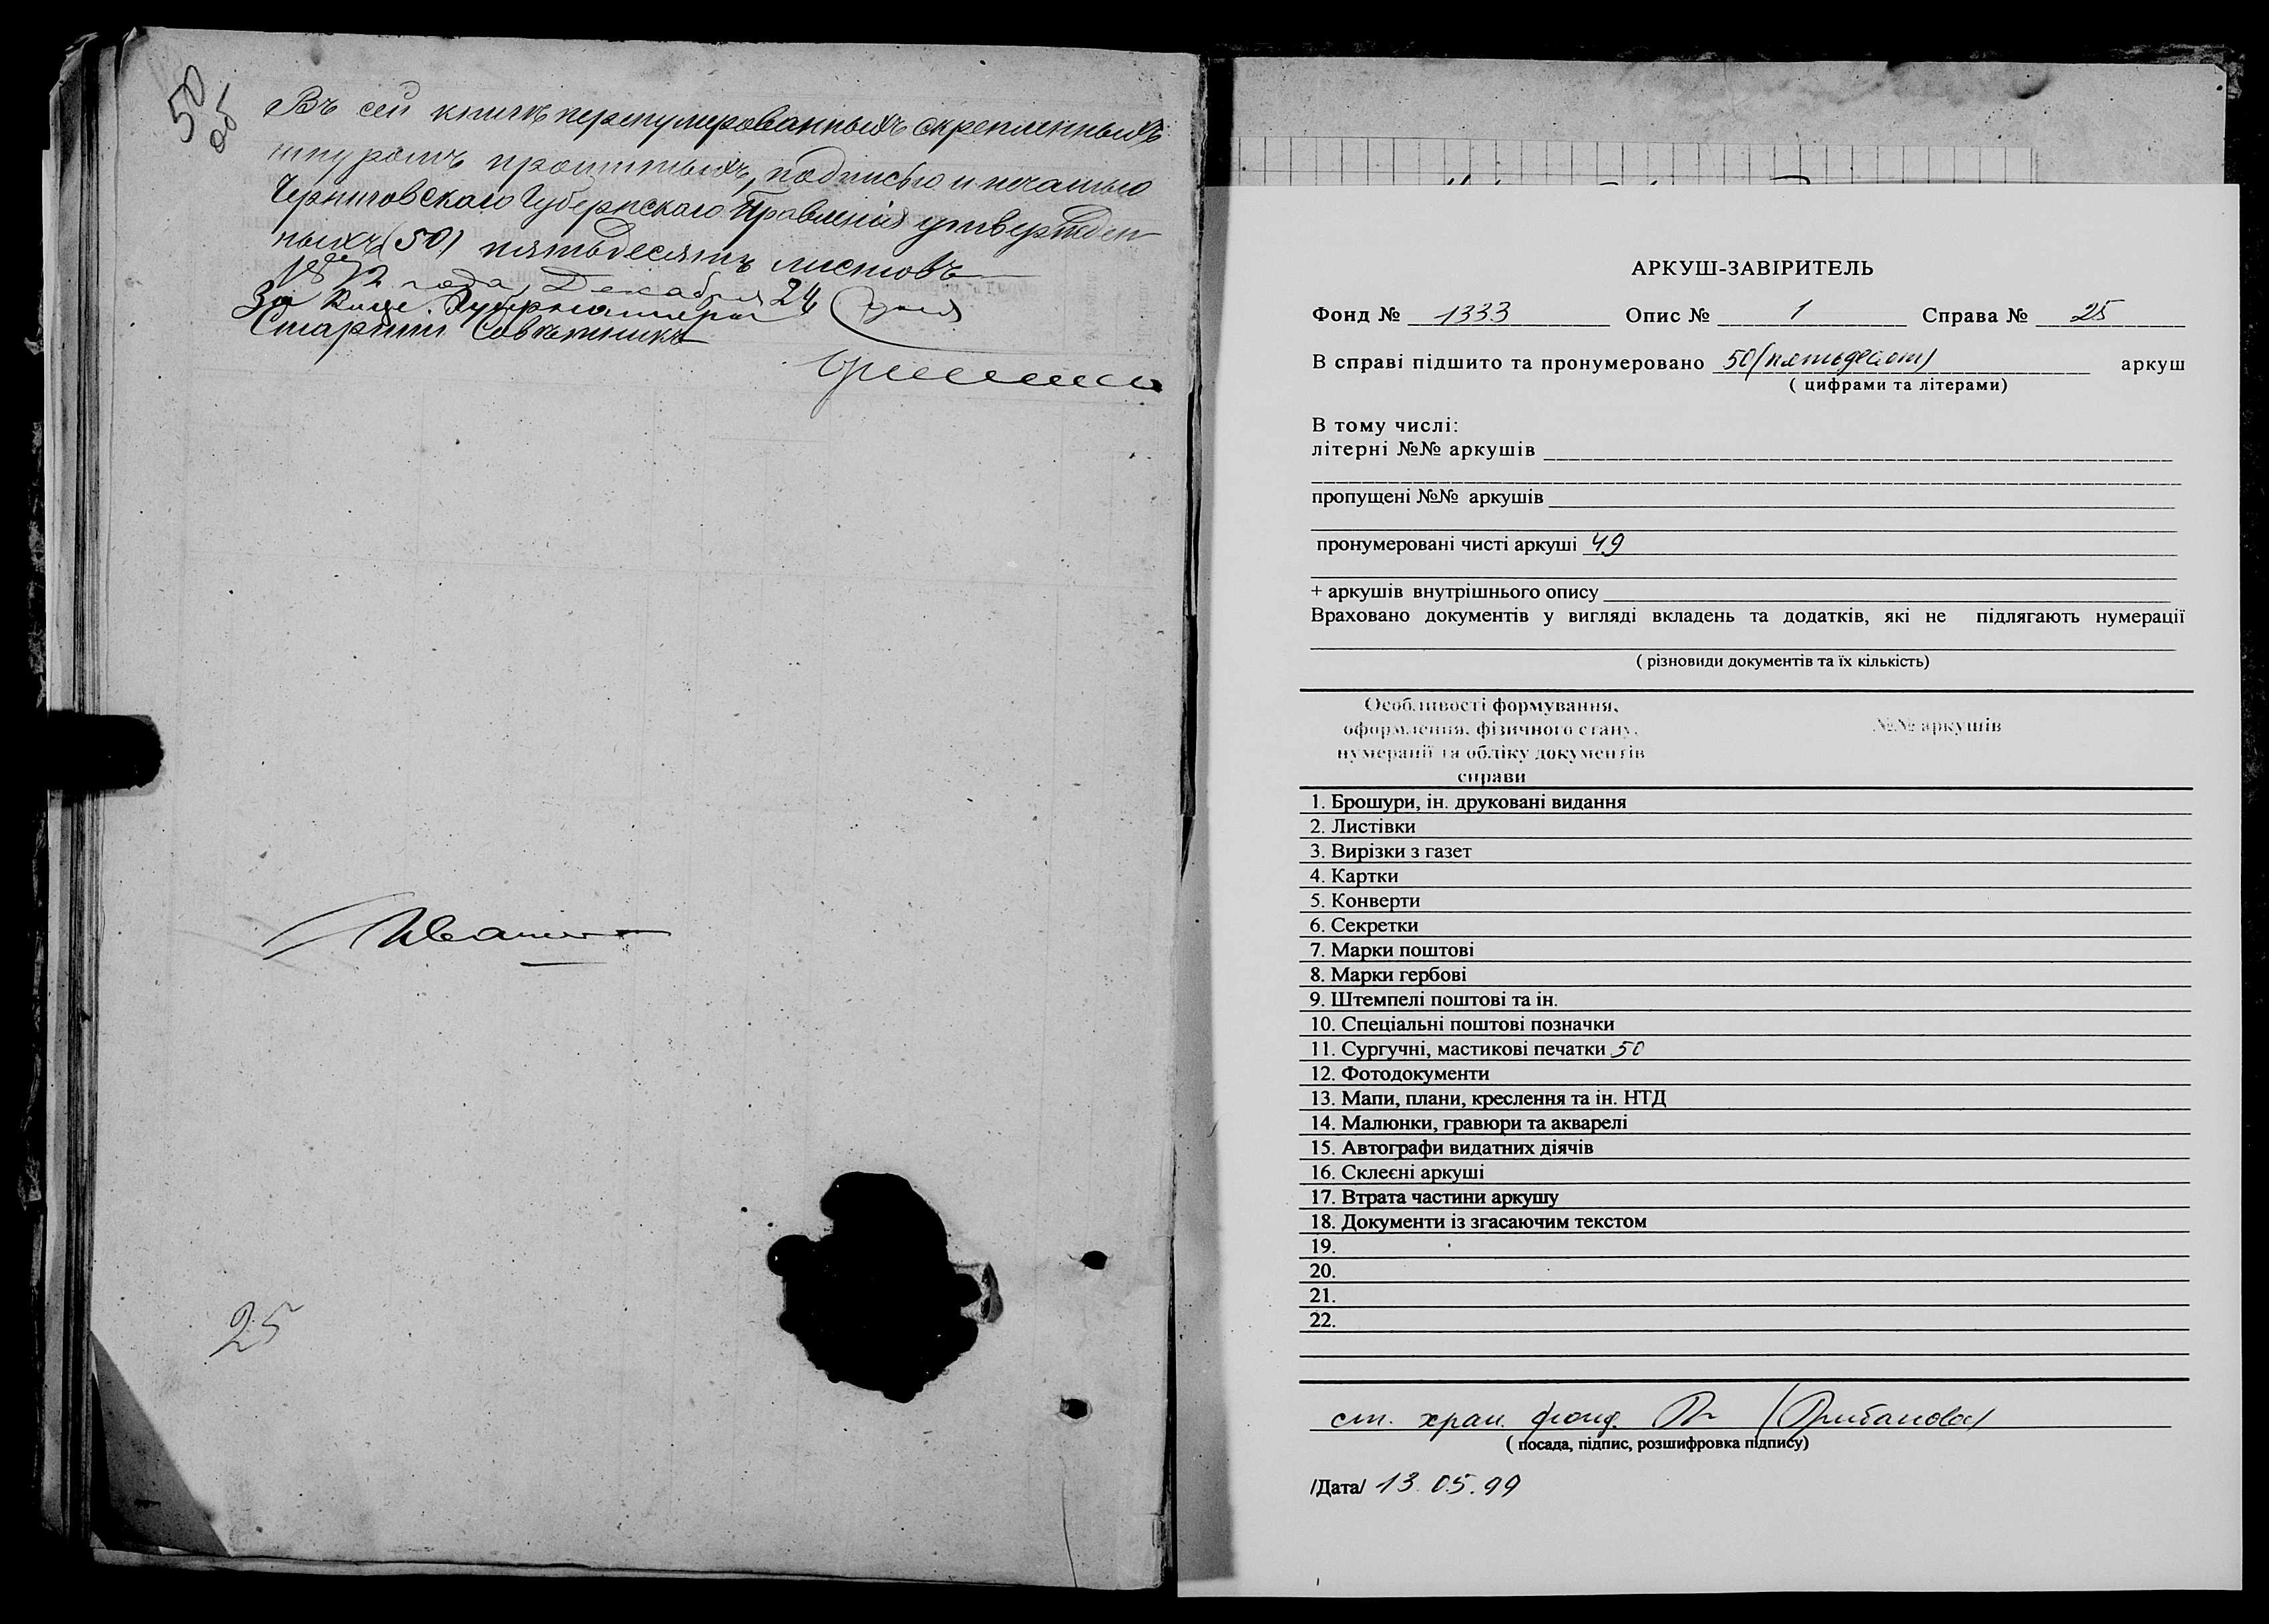 50
об
Въ сей книгѣ перенумерованныхъ скрепленныхъ
шнуромъ прошитыхъ, подписью и печатью
Черниговскаго Губернскаго Правленія утвержден
ныхъ (50) пятьдесятъ листовъ
1872 года, Декабря 24 дня
За Вице Губернатора
Старшій Совѣтникъ
25
АРКУШ-ЗАВІРИТЕЛЬ
Фонд № 1333 Опис № 1 Справа № 25
В справі підшито та пронумеровано 50 (пятьдесят) аркуш
( цифрами та літерами)
В тому числі:
літерні №№ аркушів
пропущені №№ аркушів
пронумеровані чисті аркуші 49
+ аркушів внутрішнього опису
Враховано документів у вигляді вкладень та додатків, які не підлягають нумерації
( різновиди документів та їх кількість)
Особливості формування,
оформлення, фізичного стану, №№ аркушів
нумерації та обліку документів
справи
1. Брошури, ін. друковані видання
2. Листівки
3. Вирізки з газет
4. Картки
5. Конверти
6. Секретки
7. Марки поштові
8. Марки гербові
9. Штемпелі поштові та ін.
10. Спеціальні поштові позначки
11. Сургучні, мастикові печатки 50
12. Фотодокументи
13. Мапи, плани, креслення та ін. НТД
14. Малюнки, гравюри та акварелі
15. Автографи видатних діячів
16. Склеєні аркуші
17. Втрата частини аркушу
18. Документи із згасаючим текстом
19.
20.
21.
22.
ст. хран. фонд.
( посада, підпис, розшифровка підпису)
/Дата/ 13.05.99